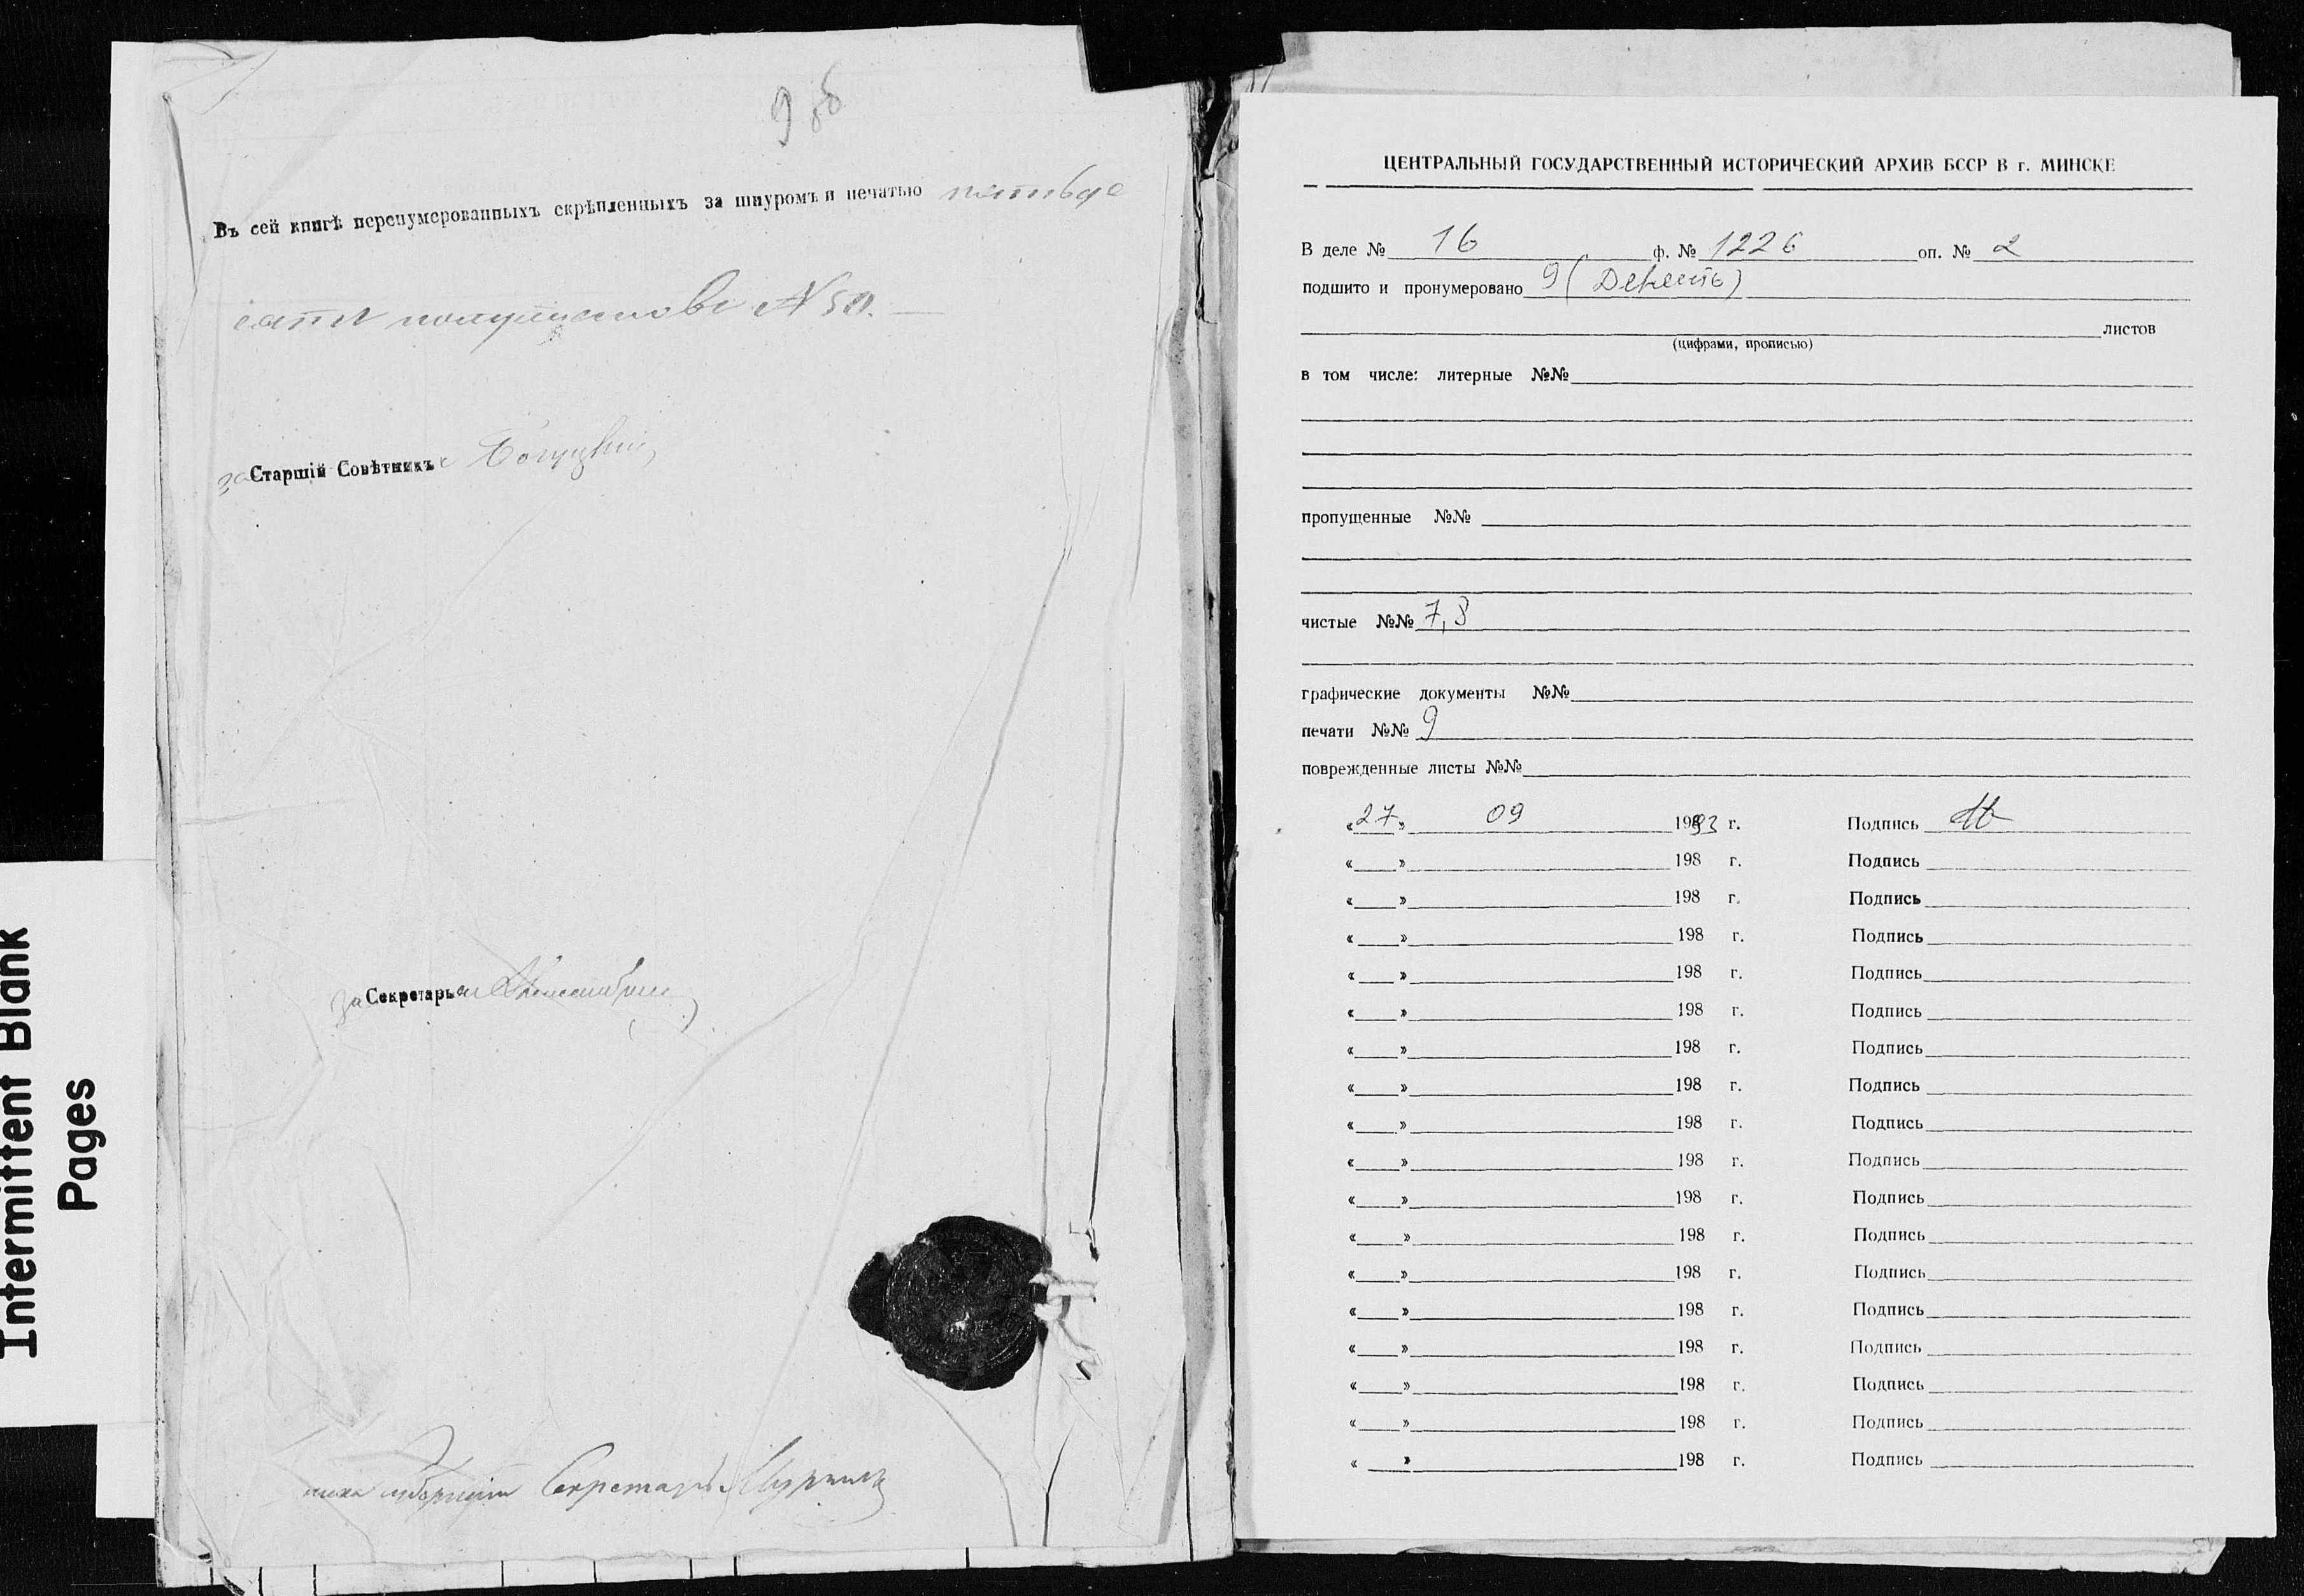 Intermittent Blank
Pages
9 об
Въ сей книгѣ перенумерованныхъ скрѣпленныхъ за шнуромъ и печатью пятьде
сятъ полулистовъ N 50. —
за Старшій Совѣтникъ
за Секретарь
Секретарь
ЦЕНТРАЛЬНЫЙ ГОСУДАРСТВЕННЫЙ ИСТОРИЧЕСКИЙ АРХИВ БССР В г. МИНСКЕ
В деле № 16 ф. № 1226 оп. № 2
подшито и пронумеровано 9 (Девять)
листов
(цифрами, прописью)
в том числе: литерные №№
пропущенные №№
чистые №№ 7, 8
графические документы №№
печати №№ 9
поврежденные листы №№
« 27 » 09 1993 г. Подпись
« » 198 г. Подпись
« » 198 г. Подпись
« » 198 г. Подпись
« » 198 г. Подпись
« » 198 г. Подпись
« » 198 г. Подпись
« » 198 г. Подпись
« » 198 г. Подпись
« » 198 г. Подпись
« » 198 г. Подпись
« » 198 г. Подпись
« » 198 г. Подпись
« » 198 г. Подпись
« » 198 г. Подпись
« » 198 г. Подпись
« » 198 г. Подпись
« » 198 г. Подпись